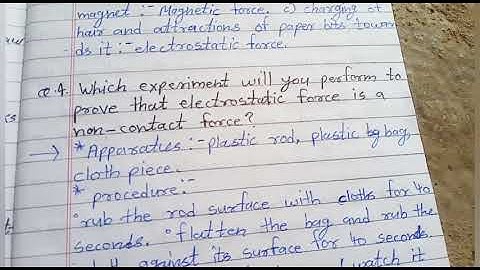 magnet :- Magnetic force. c) charging of
hair and attractions of paper bits towar
ds it :- electrostatic force.
Q.4. Which experiment will you perform to
prove that electrostatic force is a
non-contact force?
→ * Apparatus :- plastic rod, plastic bag,
cloth piece.
* procedure :-
° rub the rod surface with cloths for 40
seconds. ° flatten the bag and rub the
against its surface for 40 seconds.
watch it